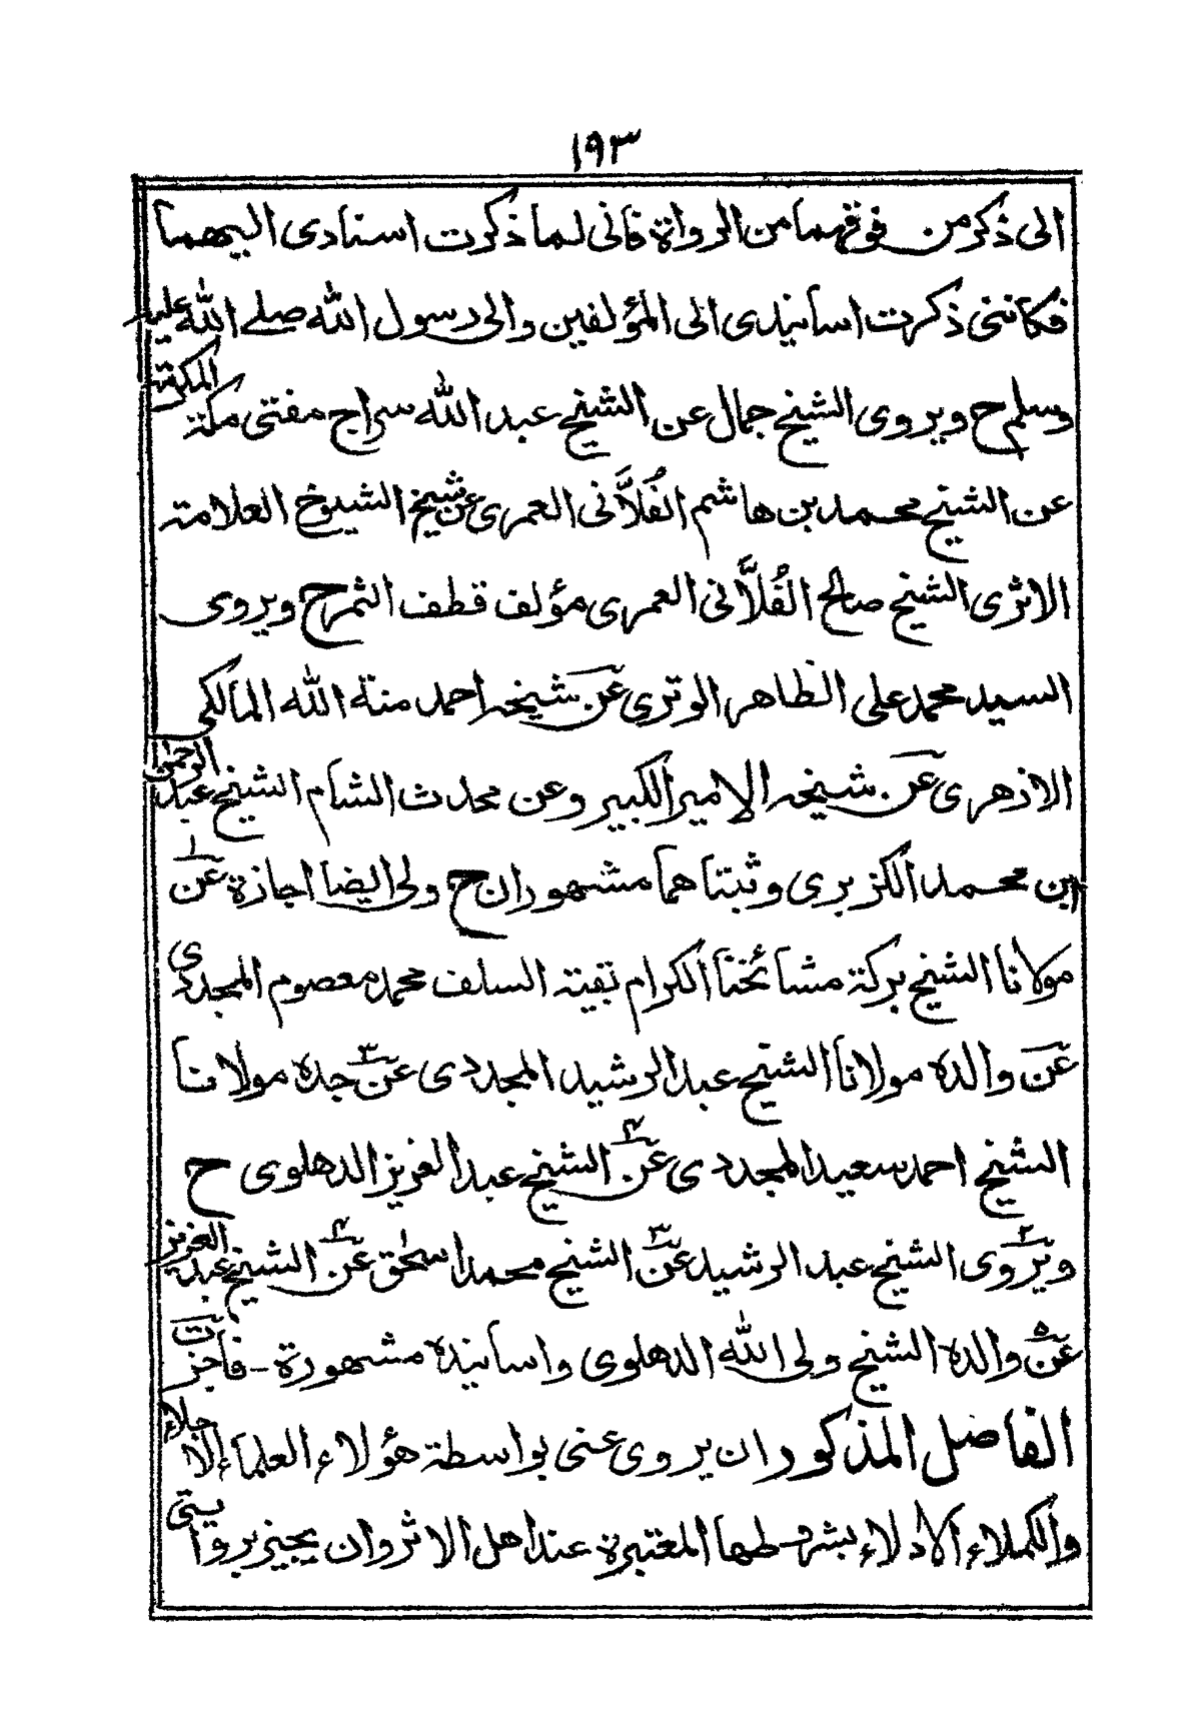 ١٩٣
الى ذكر من فوقهما من الرواة فانى لما ذكرت اسنادى اليهما
فكاننى ذكرت اسانيدى الى المؤلفين والى رسول الله صلے الله عليه
وسلم ح ويروى الشيخ جمال عن الشيخ عبد الله سراج مفتى مكة المكرمة
عن الشيخ محمد بن هاشم الفُلاَّنى العمرى عن شيخ الشيوخ العلامة
الاثرى الشيخ صالح الفُلاَّنى العمرى مؤلف قطف الثمر ح ويروى
السيد محمد على الظاهر الوترى عن شيخه احمد منة الله المالكى
الازهرى عن شيخه الامير الكبير وعن محدث الشام الشيخ عبد الرحمن
ابن محمد الكزبرى وثبتاهما مشهوران ح ولى ايضا اجازة عن ١
مولانا الشيخ بركة مشائخنا الكرام بقية السلف محمد معصوم المجددى
عن والده مولانا الشيخ عبد الرشيد المجددى عن ٣ جده مولانا
الشيخ احمد سعيد المجددى عن ٤ الشيخ عبد العزيز الدهلوى ح
ويروى ٢ الشيخ عبد الرشيد عن ٣ الشيخ محمد اسحٰق عن ٤ الشيخ عبد العزيز
عن ٥ والده الشيخ ولى الله الدهلوى واسانيده مشهورة - فاجزت
الفاضل المذكور ان يروى عنى بواسطة هؤلاء العلماء الاجلاء
والكملاء الادلاء بشرطها المعتبرة عند اهل الاثر وان يجيز بروايتى